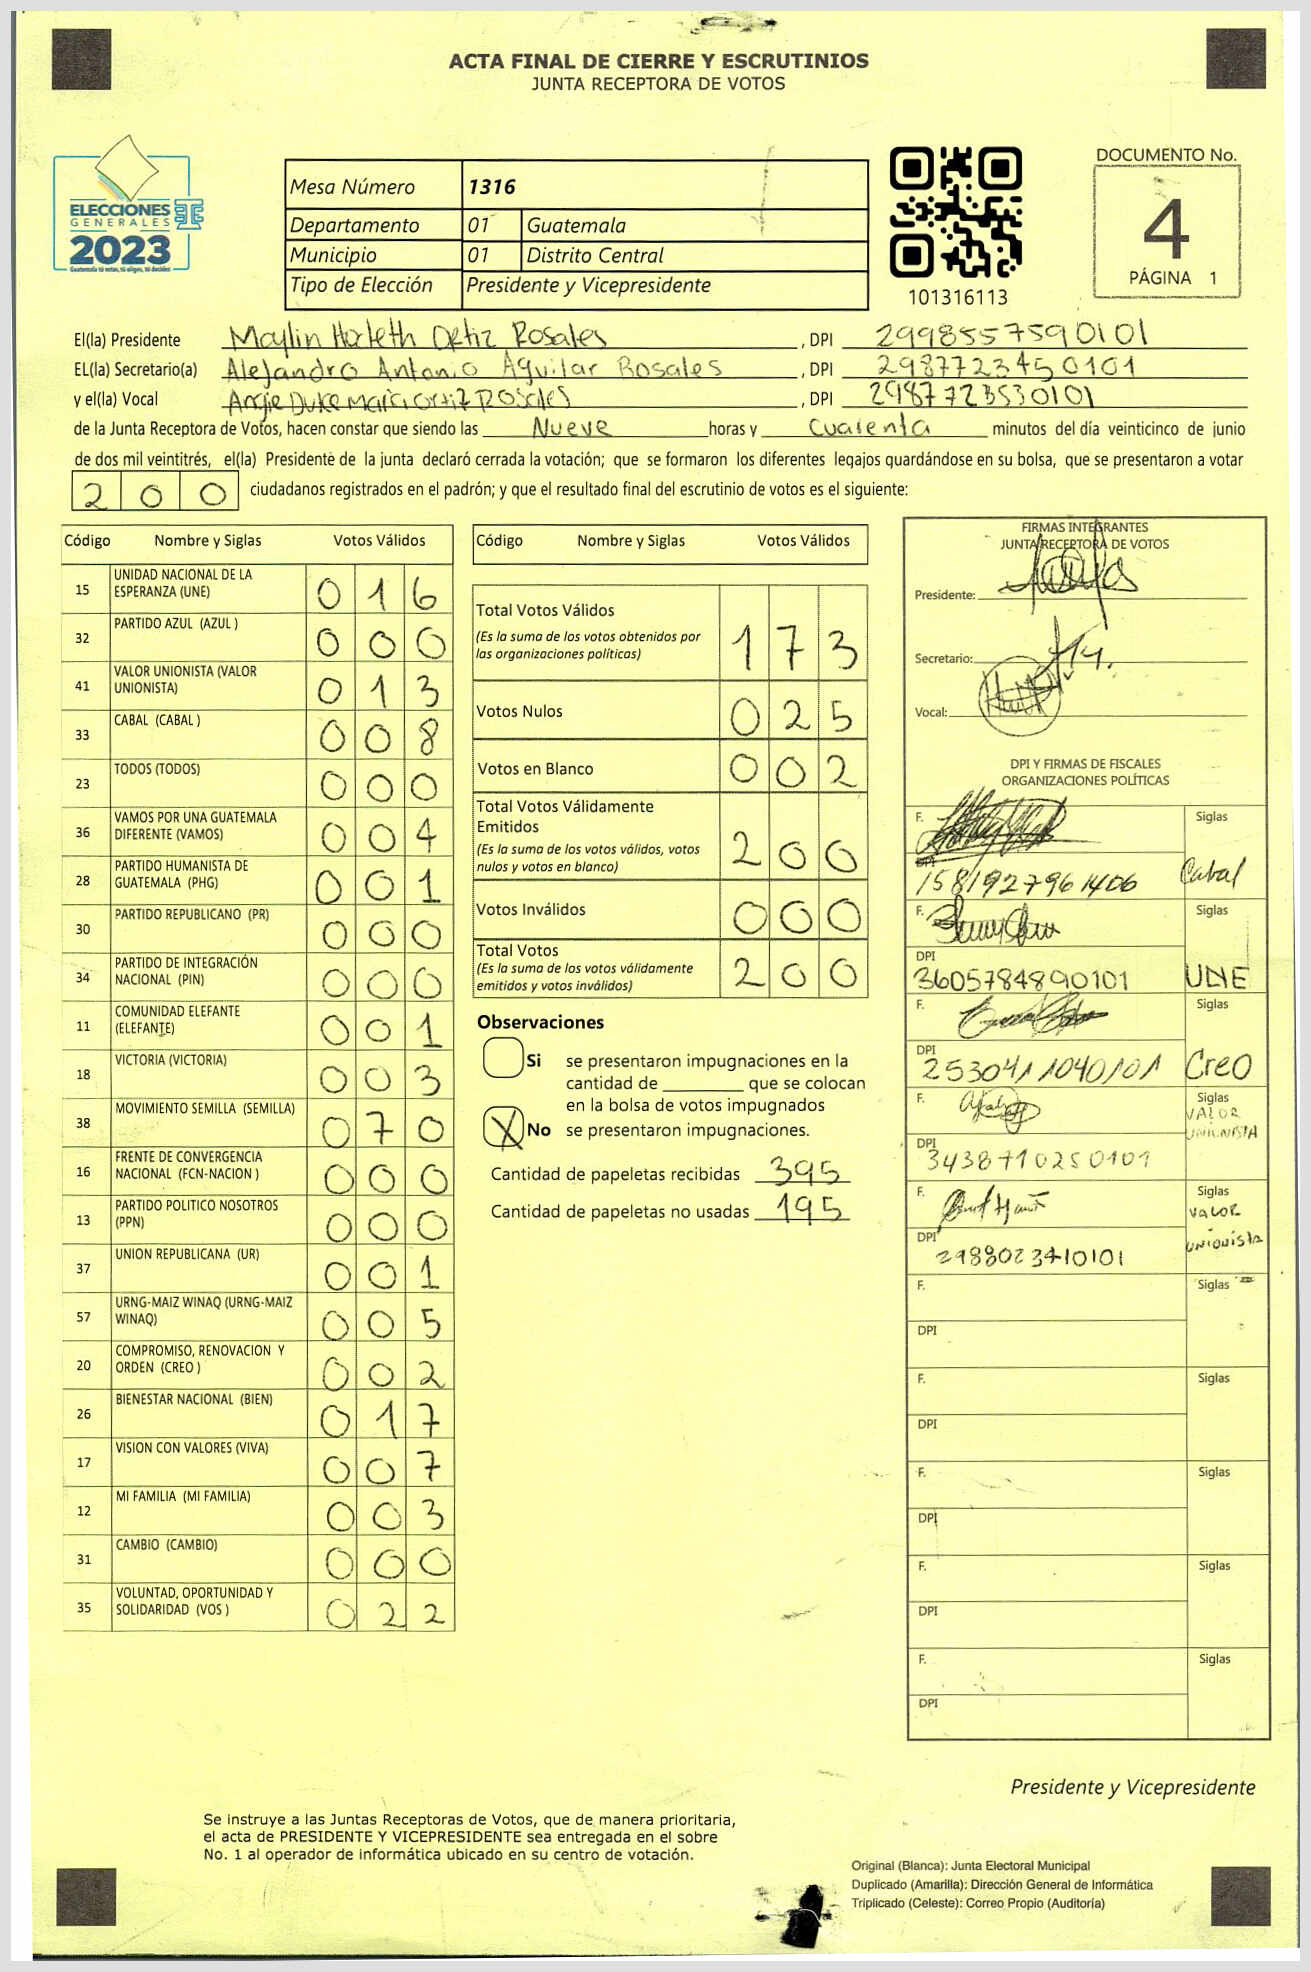 ACTA FINAL DE CIERRE Y ESCRUTINIOS
JUNTA RECEPTORA DE VOTOS
ELECCIONES
GENERALES
2023
Guatemala tú votas, tú eliges, tú decides
Mesa Número 1316
Departamento 01 Guatemala
Municipio 01 Distrito Central
Tipo de Elección Presidente y Vicepresidente
101316113
DOCUMENTO No.
4
PÁGINA 1
El(la) Presidente Maylin Ortiz Rosales , DPI 2998557590101
EL(la) Secretario(a) Alejandro Antonio Aguilar Rosales , DPI 2987723450101
y el(la) Vocal Angie Ortiz Rosales , DPI 2987723530101
de la Junta Receptora de Votos, hacen constar que siendo las Nueve horas y Cuarenta minutos del día veinticinco de junio
de dos mil veintitrés, el(la) Presidente de la junta declaró cerrada la votación; que se formaron los diferentes legajos guardándose en su bolsa, que se presentaron a votar
200 ciudadanos registrados en el padrón; y que el resultado final del escrutinio de votos es el siguiente:
Código Nombre y Siglas Votos Válidos
15 UNIDAD NACIONAL DE LA ESPERANZA (UNE) 016
32 PARTIDO AZUL (AZUL ) 000
41 VALOR UNIONISTA (VALOR UNIONISTA) 013
33 CABAL (CABAL ) 008
23 TODOS (TODOS) 000
36 VAMOS POR UNA GUATEMALA DIFERENTE (VAMOS) 004
28 PARTIDO HUMANISTA DE GUATEMALA (PHG) 001
30 PARTIDO REPUBLICANO (PR) 000
34 PARTIDO DE INTEGRACIÓN NACIONAL (PIN) 000
11 COMUNIDAD ELEFANTE (ELEFANTE) 001
18 VICTORIA (VICTORIA) 003
38 MOVIMIENTO SEMILLA (SEMILLA) 070
16 FRENTE DE CONVERGENCIA NACIONAL (FCN-NACION ) 000
13 PARTIDO POLITICO NOSOTROS (PPN) 000
37 UNION REPUBLICANA (UR) 001
57 URNG-MAIZ WINAQ (URNG-MAIZ WINAQ) 005
20 COMPROMISO, RENOVACION Y ORDEN (CREO ) 002
26 BIENESTAR NACIONAL (BIEN) 017
17 VISION CON VALORES (VIVA) 007
12 MI FAMILIA (MI FAMILIA) 003
31 CAMBIO (CAMBIO) 000
35 VOLUNTAD, OPORTUNIDAD Y SOLIDARIDAD (VOS ) 022
Código Nombre y Siglas Votos Válidos
Total Votos Válidos 173
(Es la suma de los votos obtenidos por
las organizaciones políticas)
Votos Nulos 025
Votos en Blanco 002
Total Votos Válidamente
Emitidos 200
(Es la suma de los votos válidos, votos
nulos y votos en blanco)
Votos Inválidos 000
Total Votos 200
(Es la suma de los votos válidamente
emitidos y votos inválidos)
Observaciones
Si se presentaron impugnaciones en la
cantidad de ________ que se colocan
en la bolsa de votos impugnados
X No se presentaron impugnaciones.
Cantidad de papeletas recibidas 395
Cantidad de papeletas no usadas 195
FIRMAS INTEGRANTES
JUNTA RECEPTORA DE VOTOS
Presidente:
Secretario:
Vocal:
DPI Y FIRMAS DE FISCALES
ORGANIZACIONES POLÍTICAS
F. Siglas
DPI 1581927961406 Cabal
F. Siglas
DPI 3605784890101 UNE
F. Siglas
DPI 2530411040101 Creo
F. Siglas
DPI 3438710250101 VALOR UNIONISTA
F. Siglas
DPI 2988023410101 VALOR UNIONISTA
F. Siglas
DPI
F. Siglas
DPI
F. Siglas
DPI
F. Siglas
DPI
F. Siglas
DPI
Presidente y Vicepresidente
Se instruye a las Juntas Receptoras de Votos, que de manera prioritaria,
el acta de PRESIDENTE Y VICEPRESIDENTE sea entregada en el sobre
No. 1 al operador de informática ubicado en su centro de votación.
Original (Blanca): Junta Electoral Municipal
Duplicado (Amarilla): Dirección General de Informática
Triplicado (Celeste): Correo Propio (Auditoría)